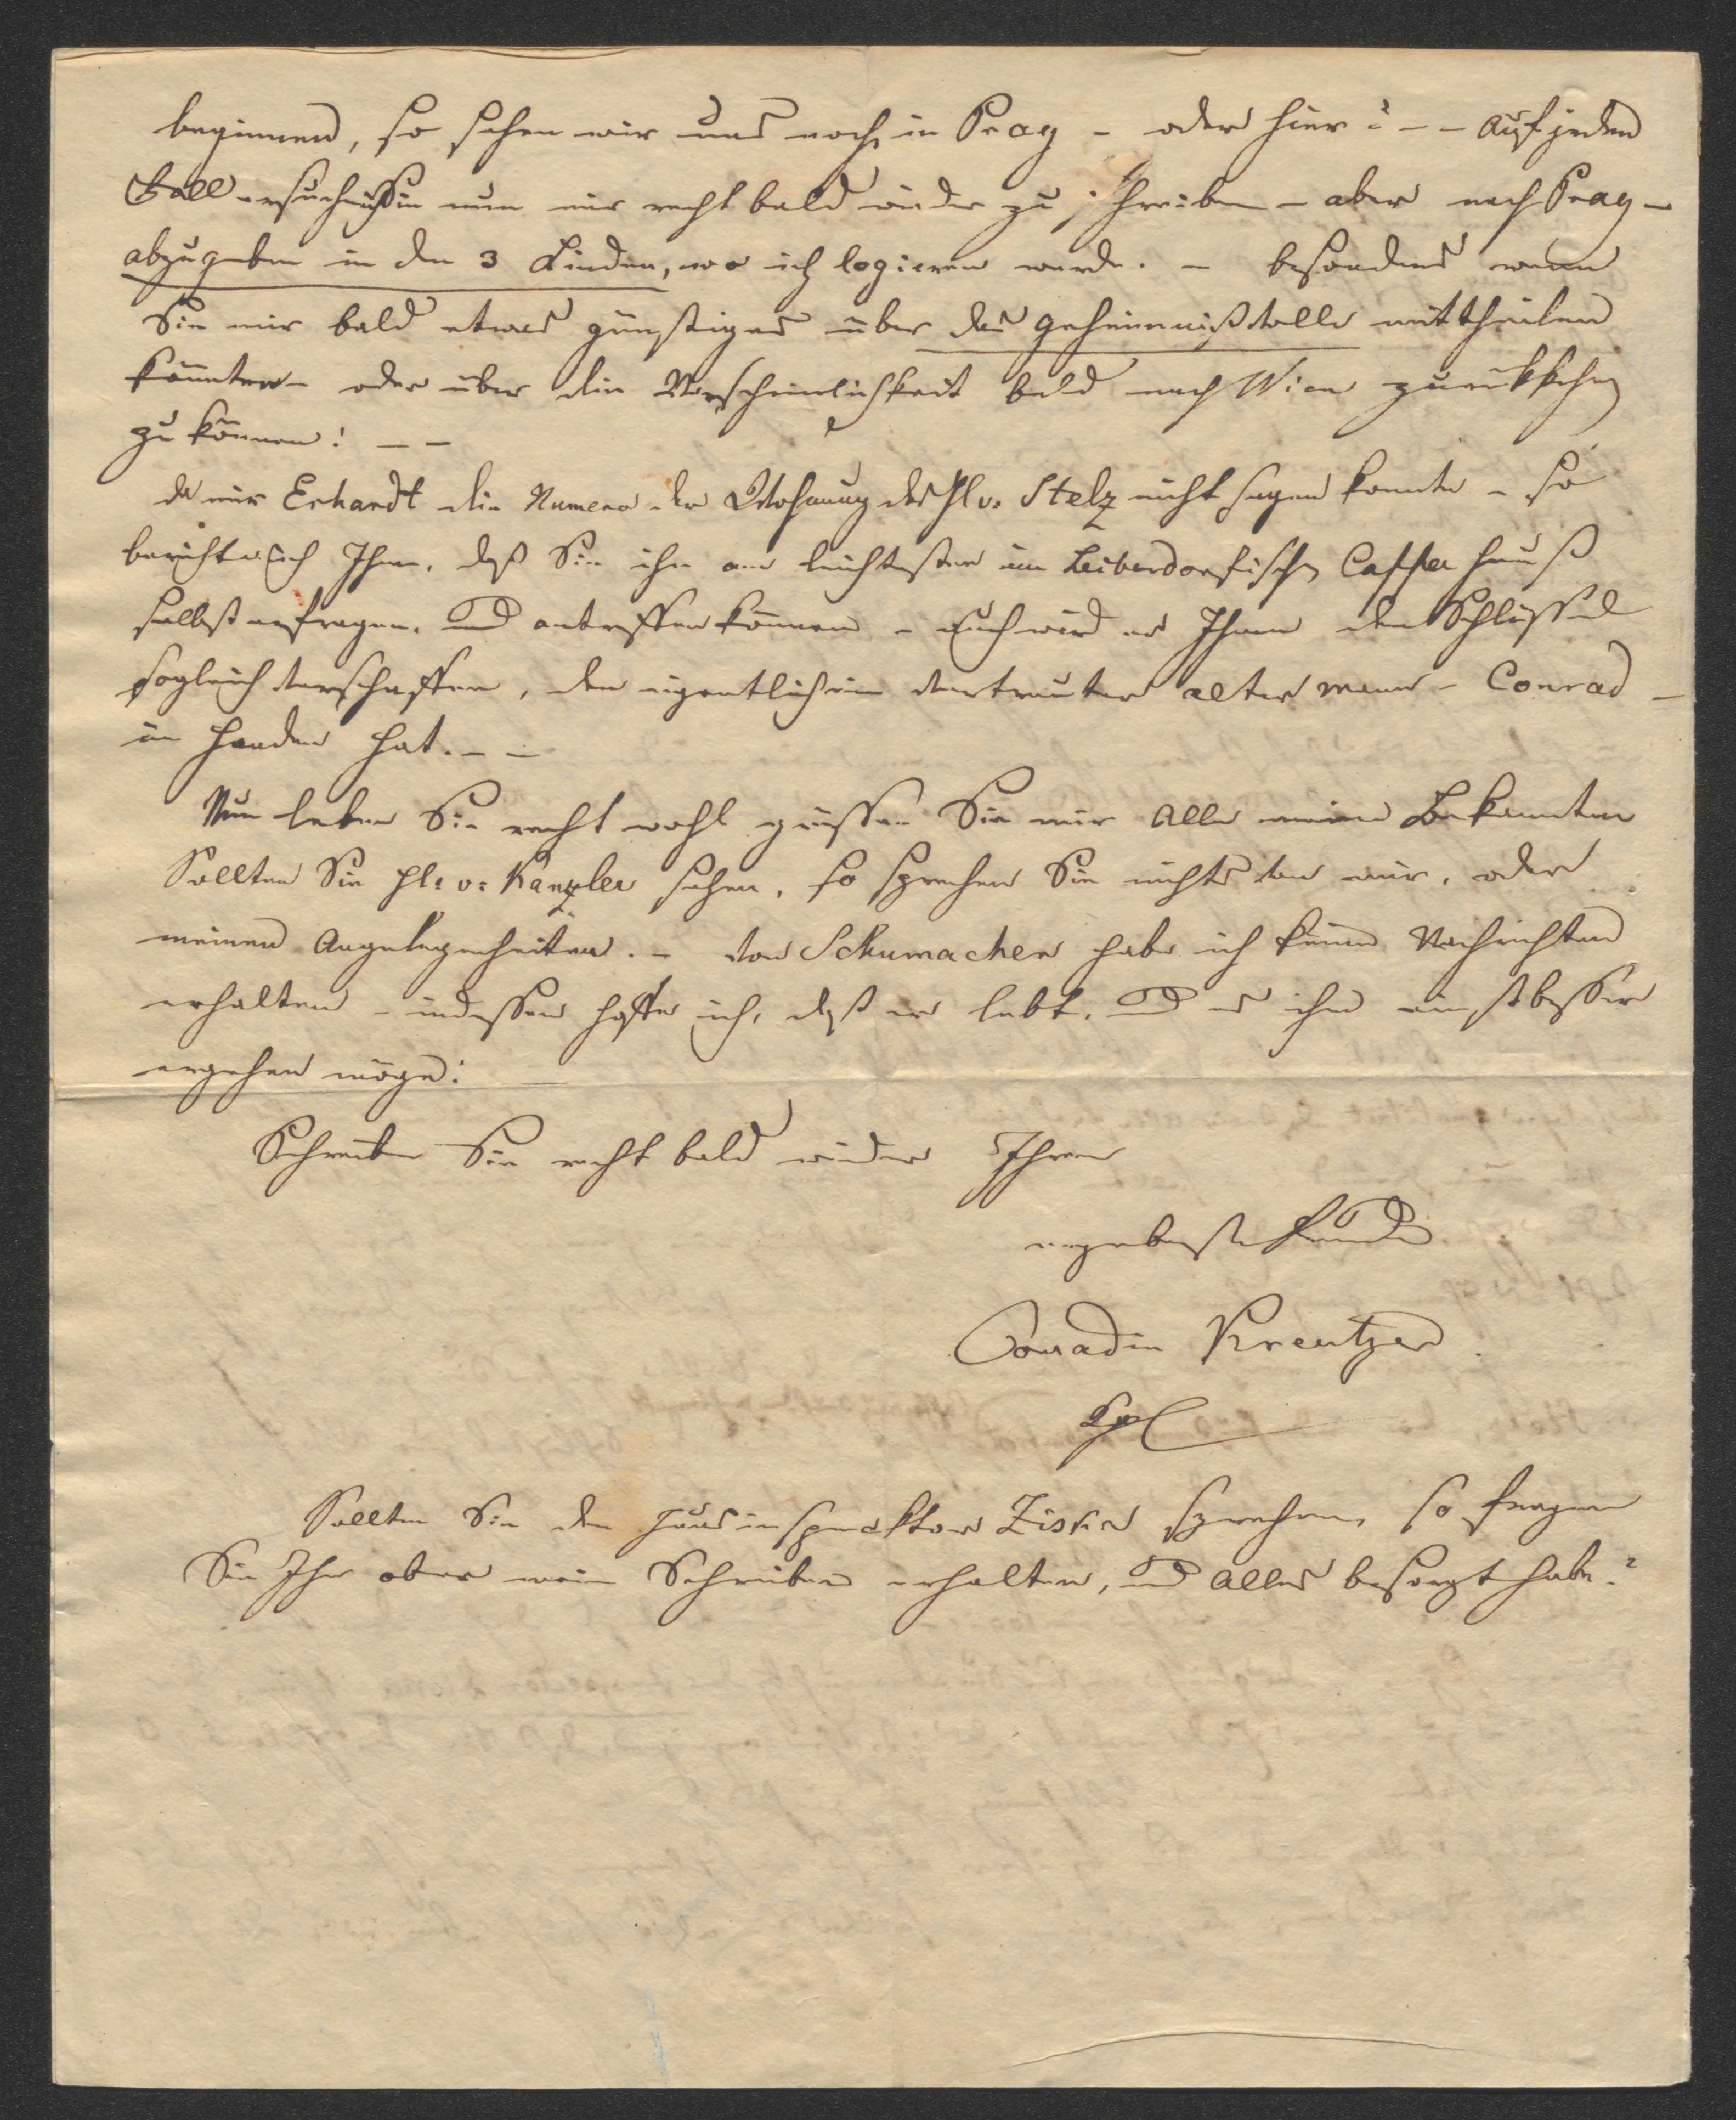 beginnen, so sehen wir uns noch in Prag – oder hier? – – Auf jeden
Fall ersuche ich Sie nun mir recht bald wieder zu schreiben – aber nach Prag –
abzugeben in den 3 Linden, wo ich logieren werde. – besonders wenn
Sie mir bald etwas günstiges über das geheimnißvolle mittheilen
könnten – oder über die Warscheinlichkeit bald nach Wien zurükkehren
zu können! – –
da mir Erhardt die Numero der Wohnung des H: v. Stelz nicht sagen konnte – so
berichte ich Ihnen, daß Sie ihn am leichtesten im Leiberdorfischen Caffee hauß
selbst erfragen, und antreffen können – auch wird er Ihnen den Schlüssel
sogleich verschaffen, den eigentlich ein vertrauter alter Mann – Conrad –
in Handen hat. – –
Nun leben Sie recht wohl grüssen Sie mir Alle meine Bekannten
Sollten Sie H: v: Kanzler sehen, so sprechen Sie nichts von mir, oder
meinen Angelegenheiten. – von Schumacher habe ich keine Nachrichten
erhalten – indessen hoffe ich, daß er lebt, und es ihm einst besser
ergehen möge!
Schreiben Sie recht bald wieder Ihrem
ergebensten Freunde
Conradin Kreutzer
Kpl
Sollten Sie den Hausinspecktor Ziska sprechen, so fragen
Sie Ihn ob er mein Schreiben erhalten, und Alles besorgt habe?